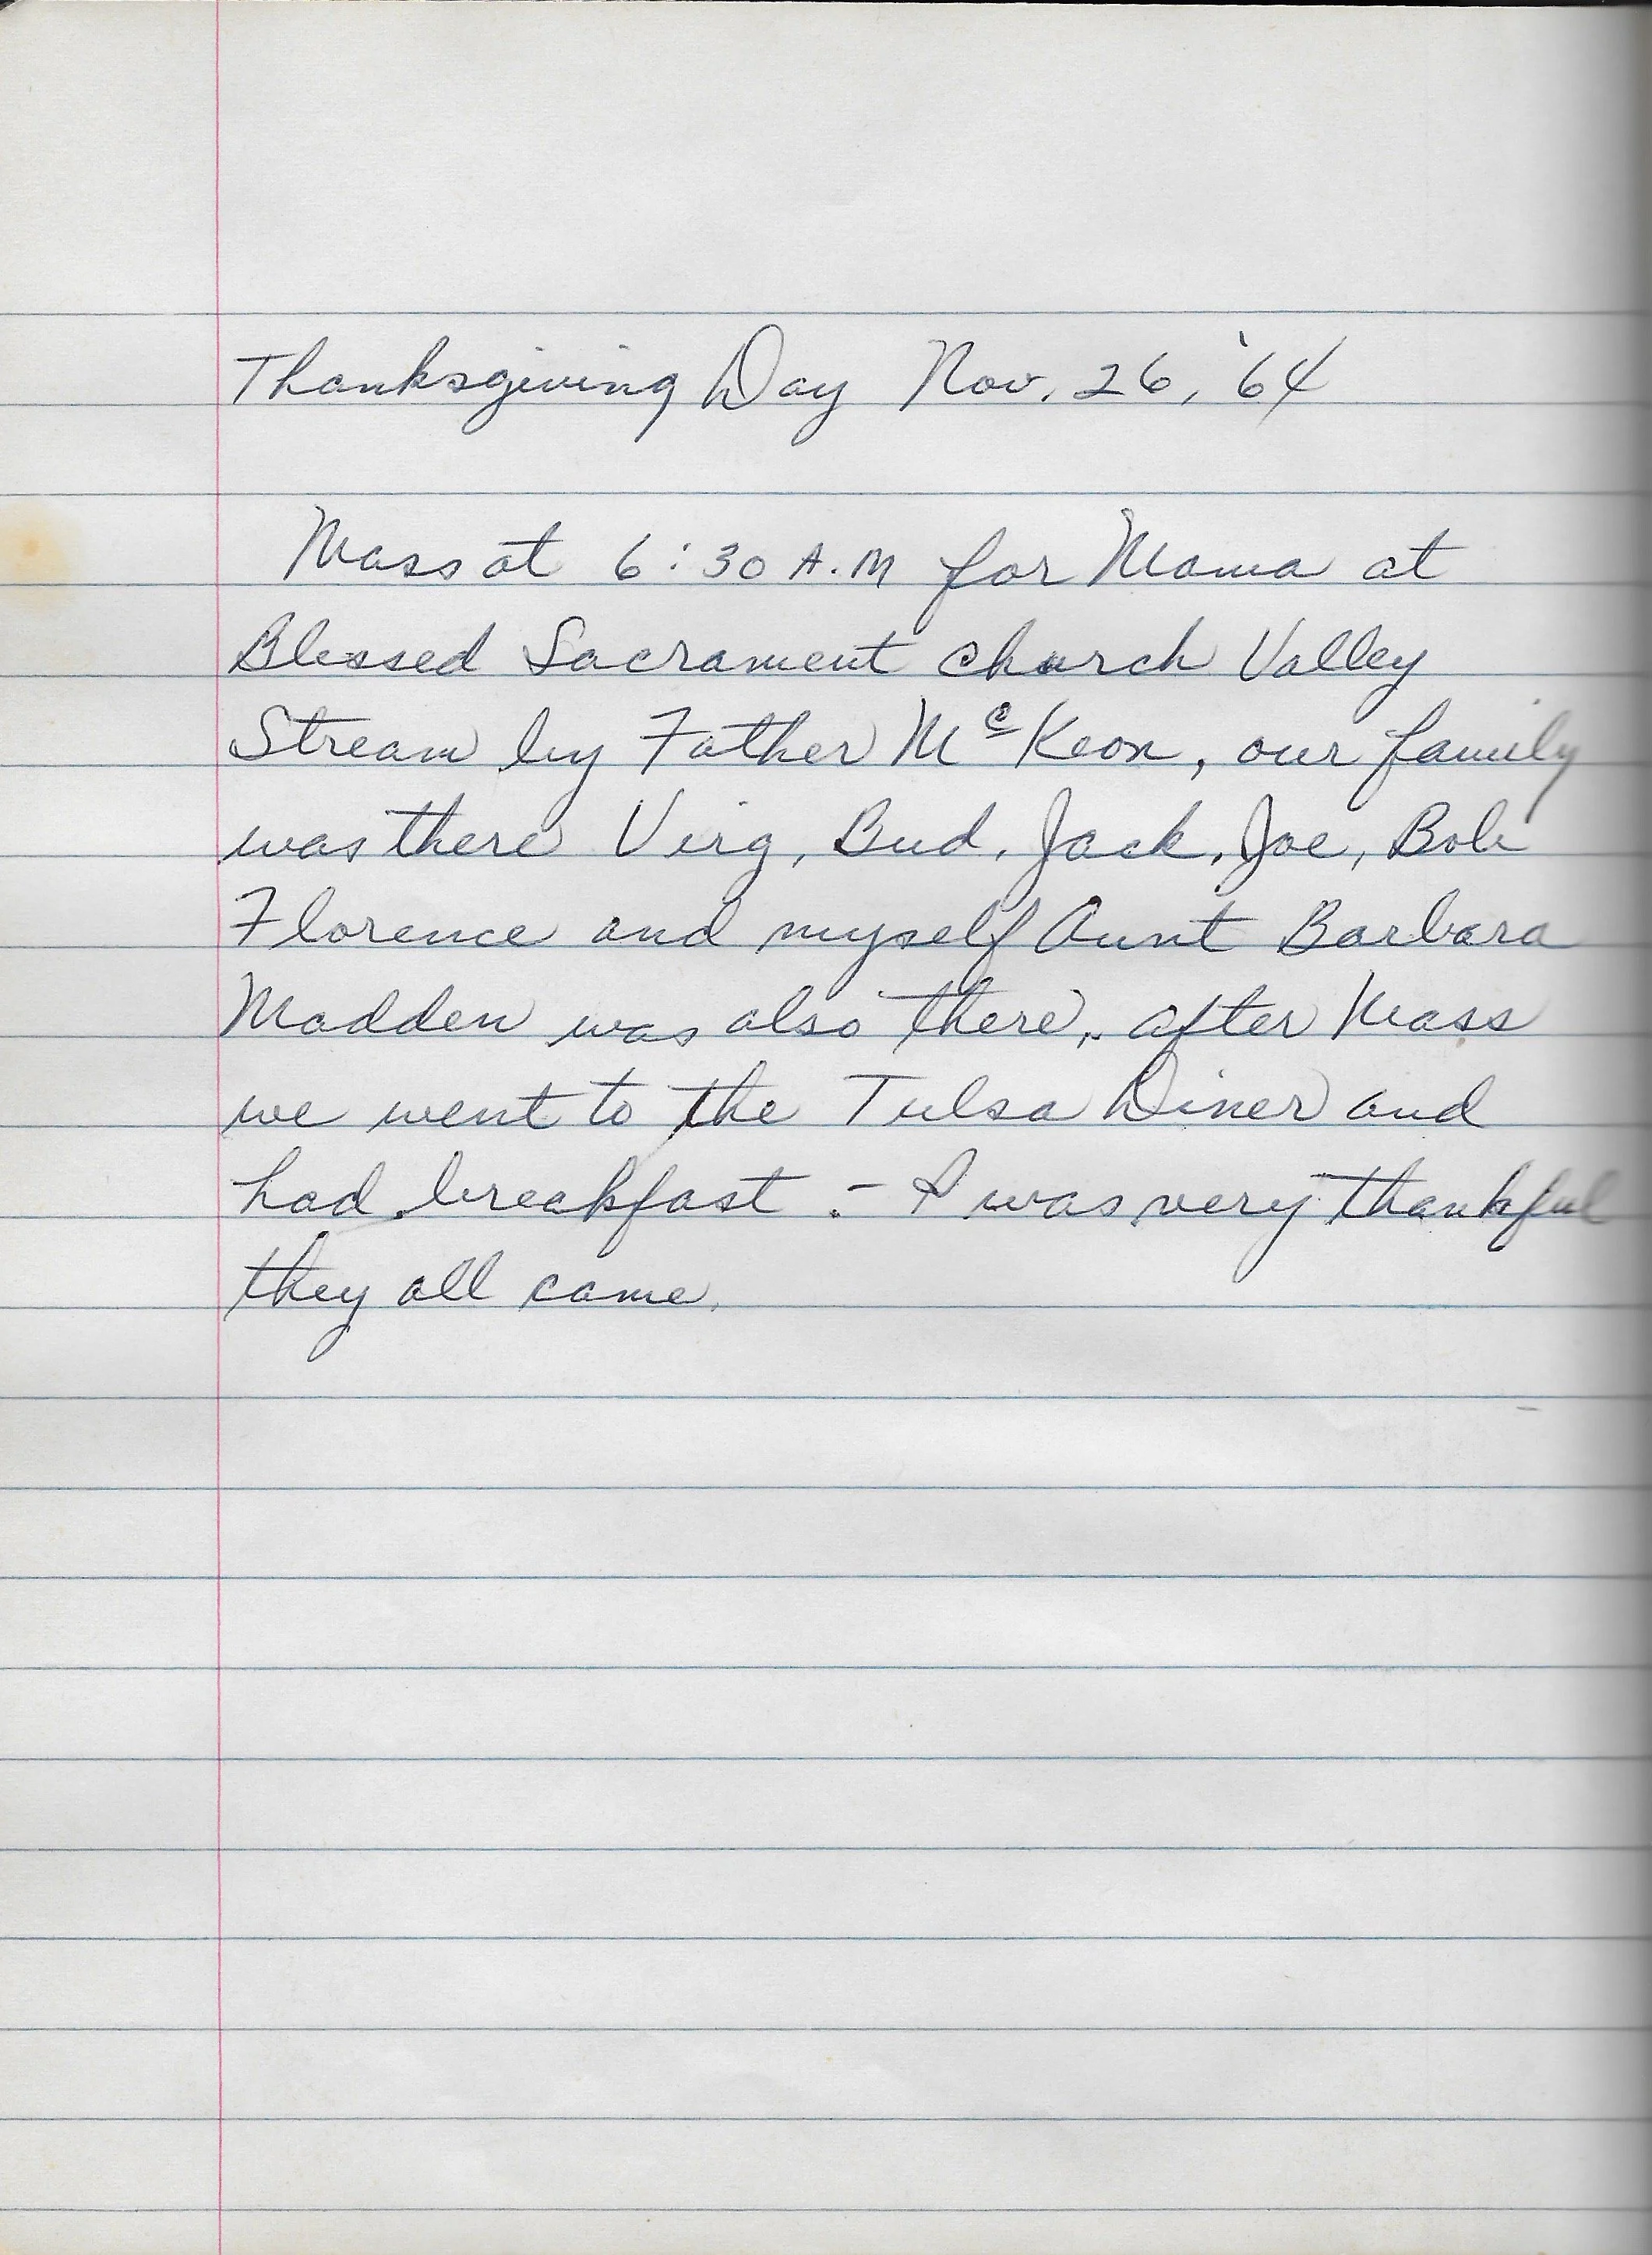 Thanksgiving Day Nov. 26, '64
Mass at 6:30 A.M for Mama at
Blessed Sacrament church Valley
Stream by Father McKeon, our family
was there Virg, Bud, Jack, Joe, Bob
Florence and myself Aunt Barbara
Madden was also there, after Mass
we went to the Tulsa Diner and
had breakfast - I was very thankful
they all came.